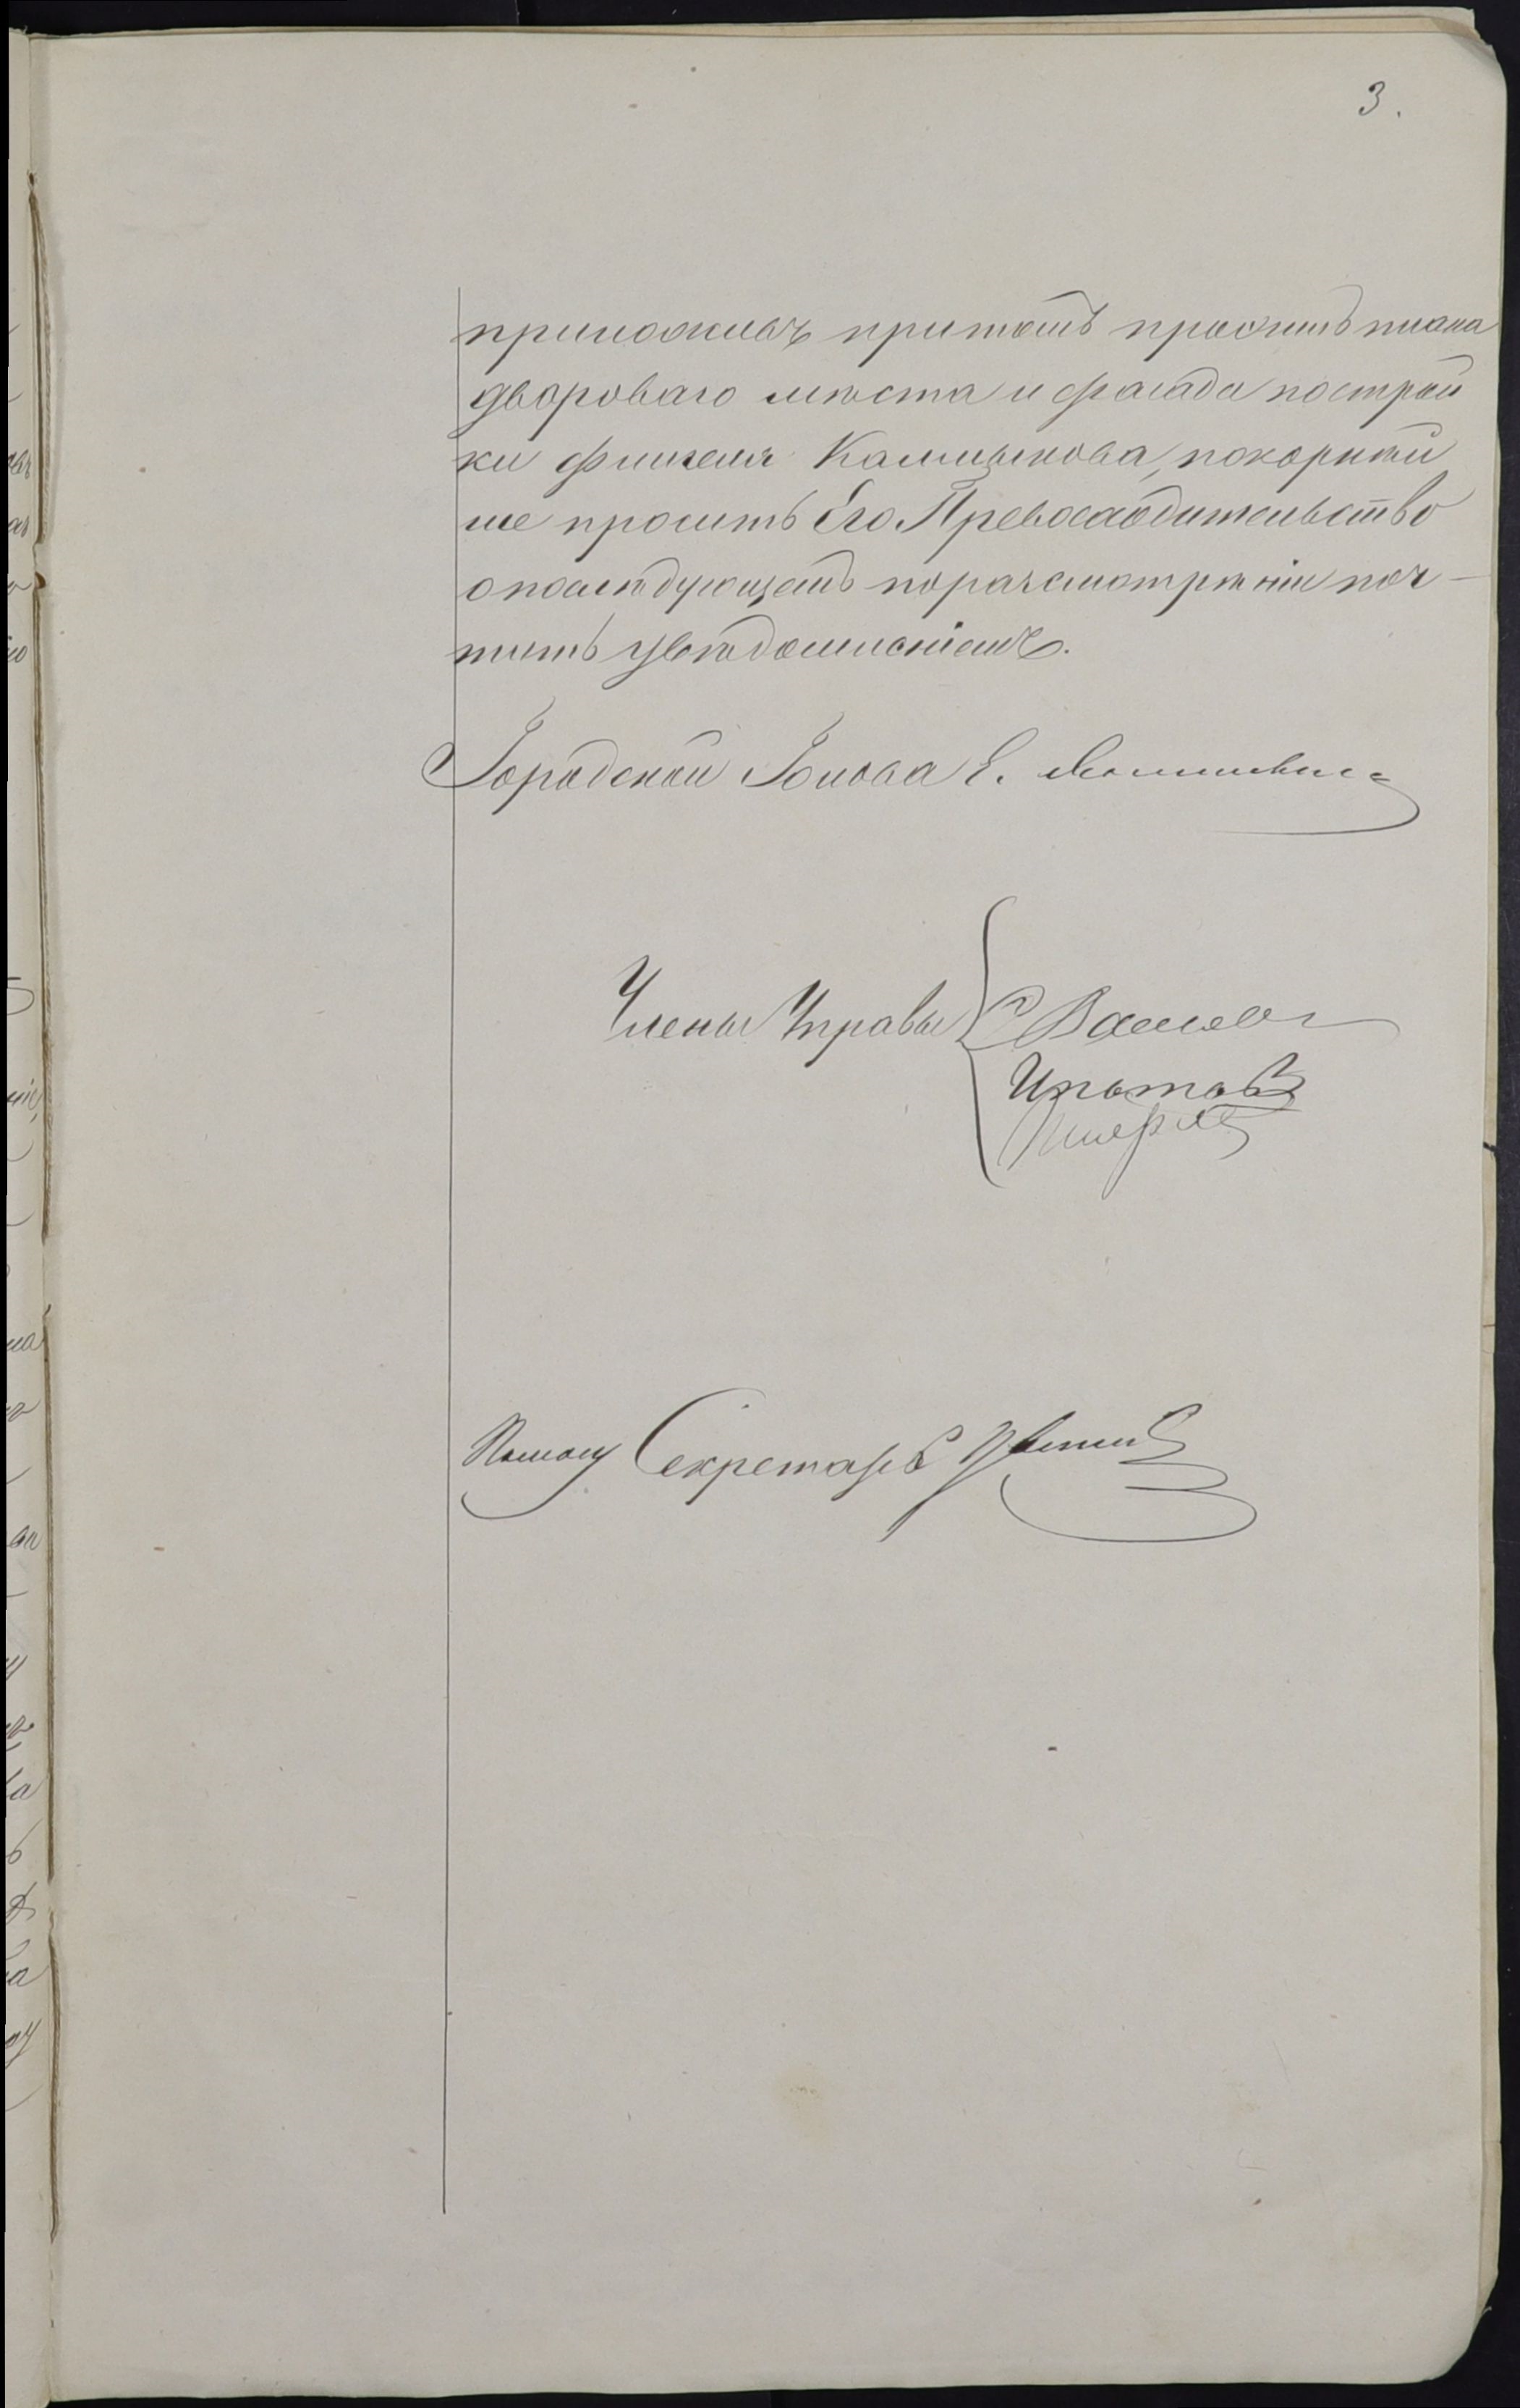 3.
приложивъ притомъ проэктъ плана
двороваго мѣста и фасада построй
ки флигеля Калмыкова, покорнѣй
ше просить Его Превосходительство
о послѣдующемъ по разсмотрѣніи поч-
тить увѣдомленіемъ.
Городской Голова Е.
Члены Управы
Ипатовъ
Помощ Секретарь